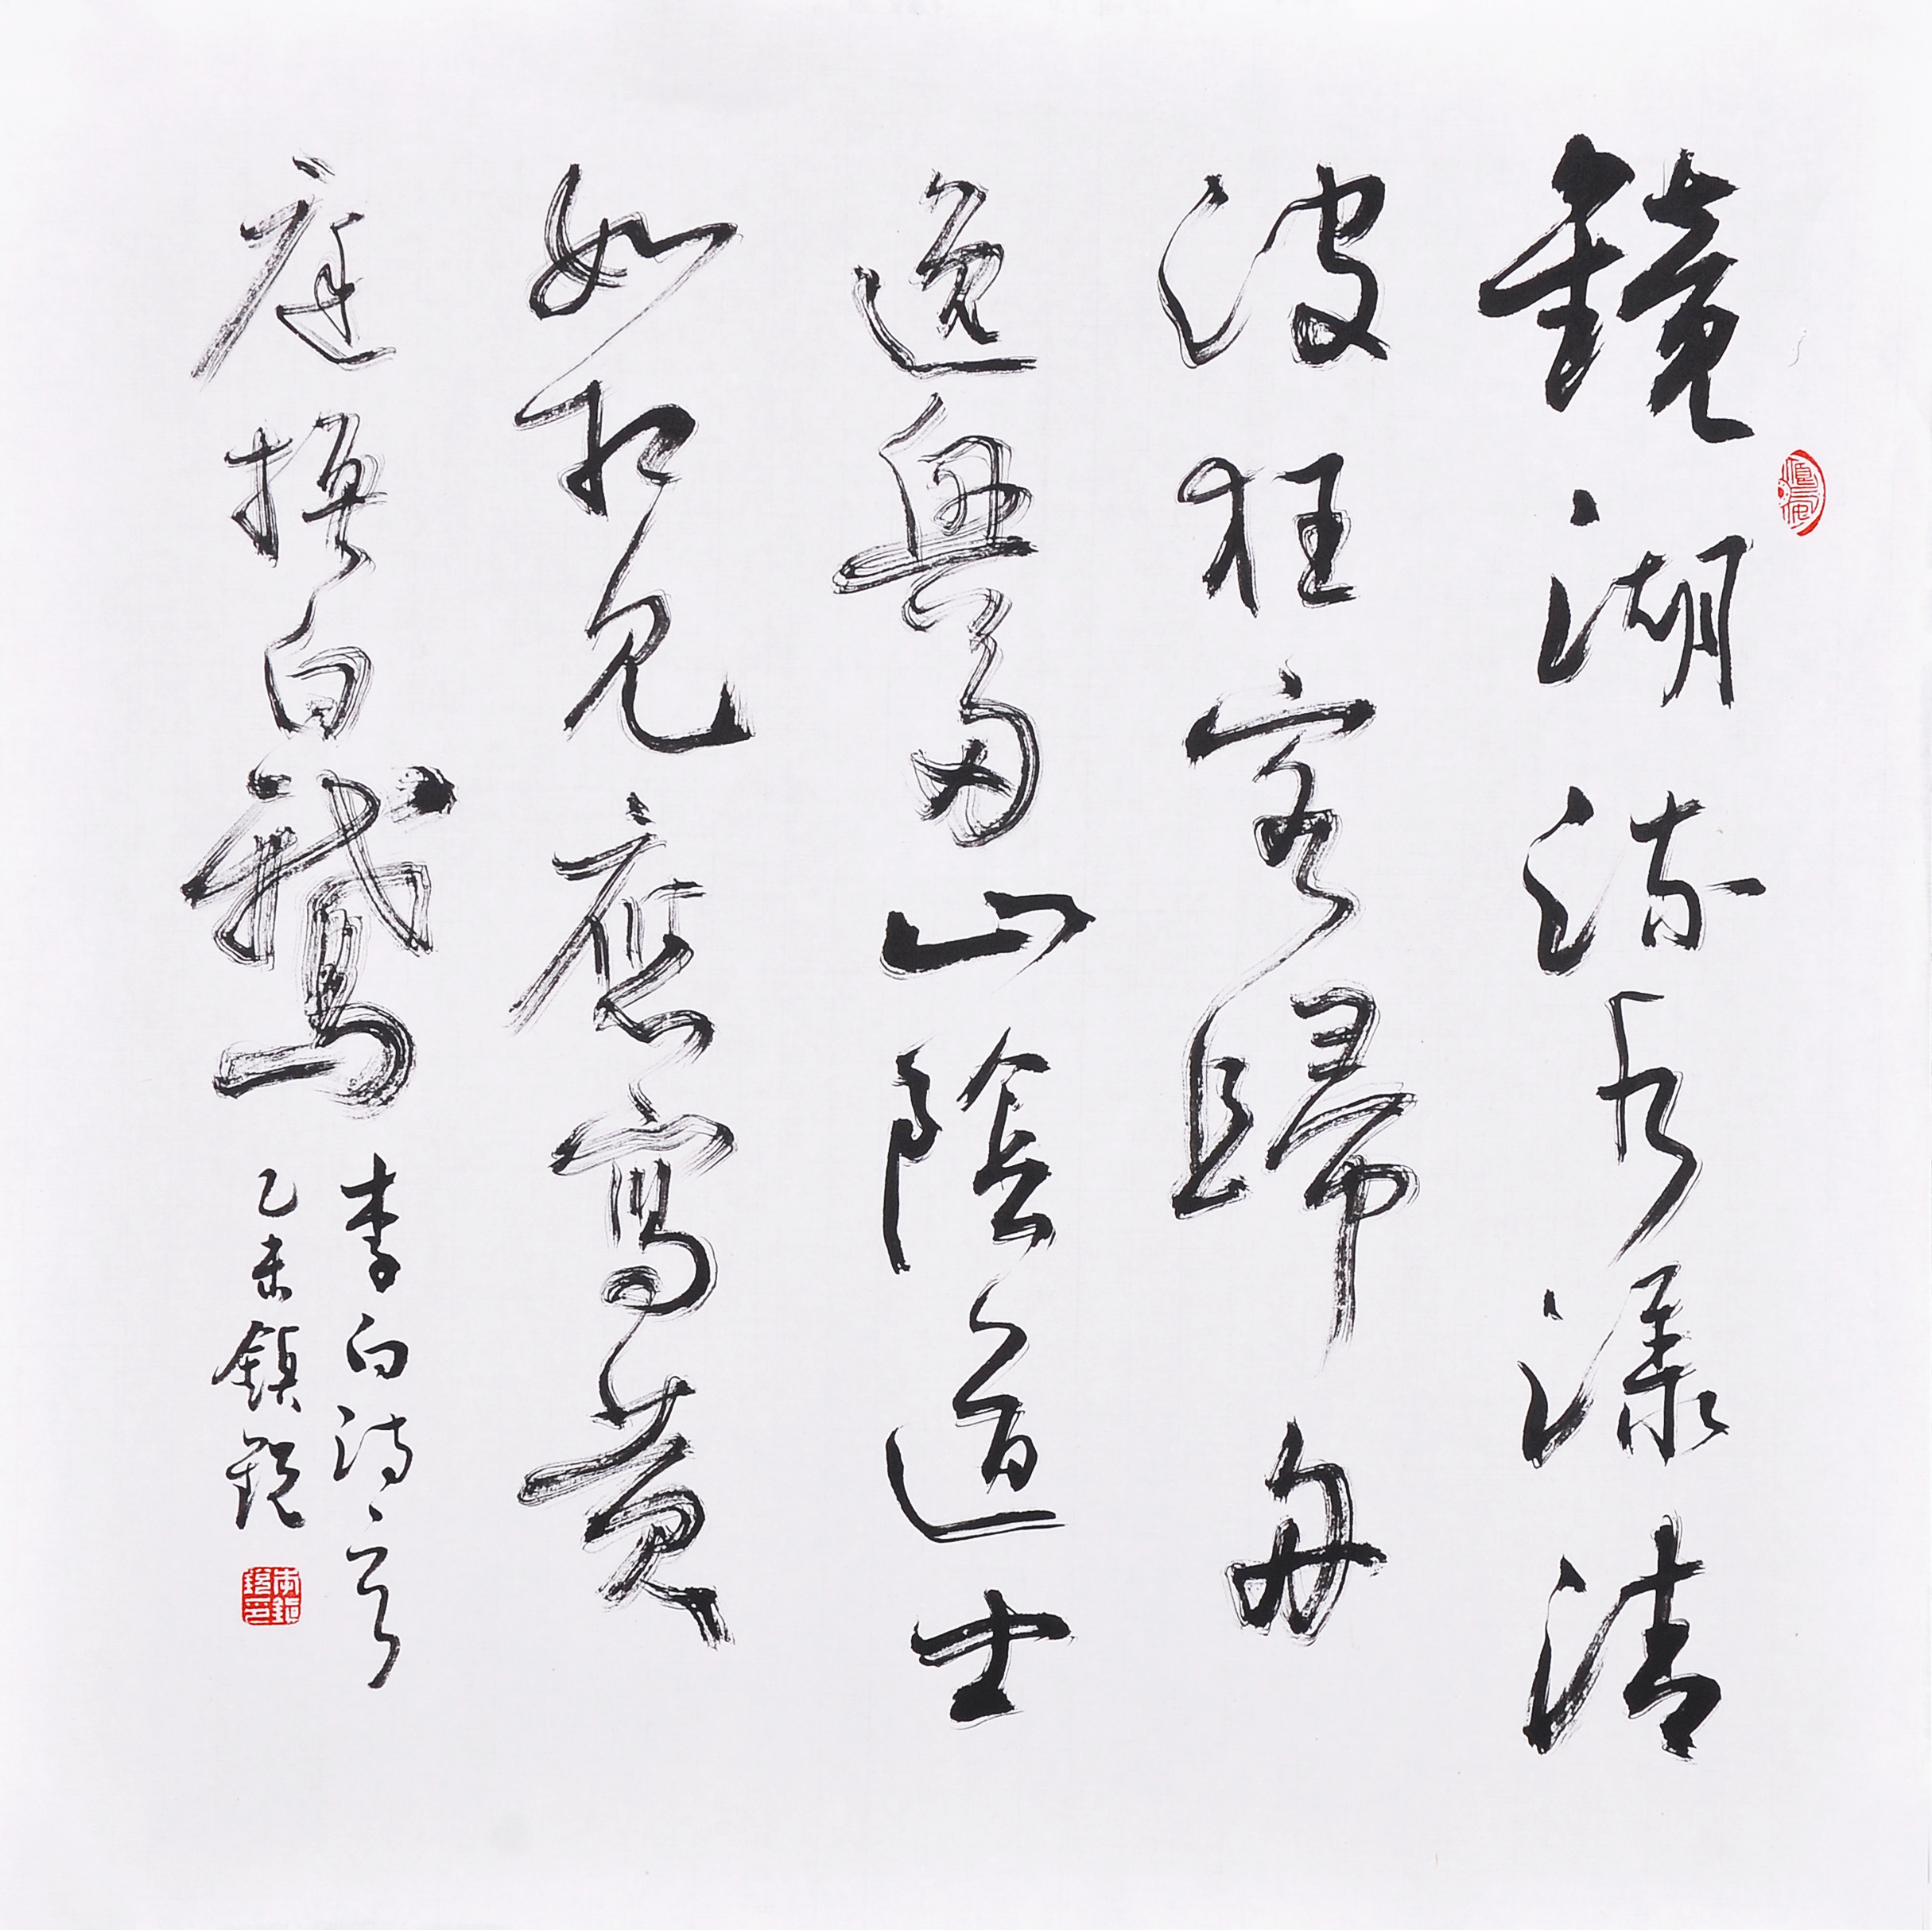 鏡湖流水漾清
波狂客歸舟
逸興多山陰道士
如相見應寫黃
庭換白鵝
李白詩
乙未鎮